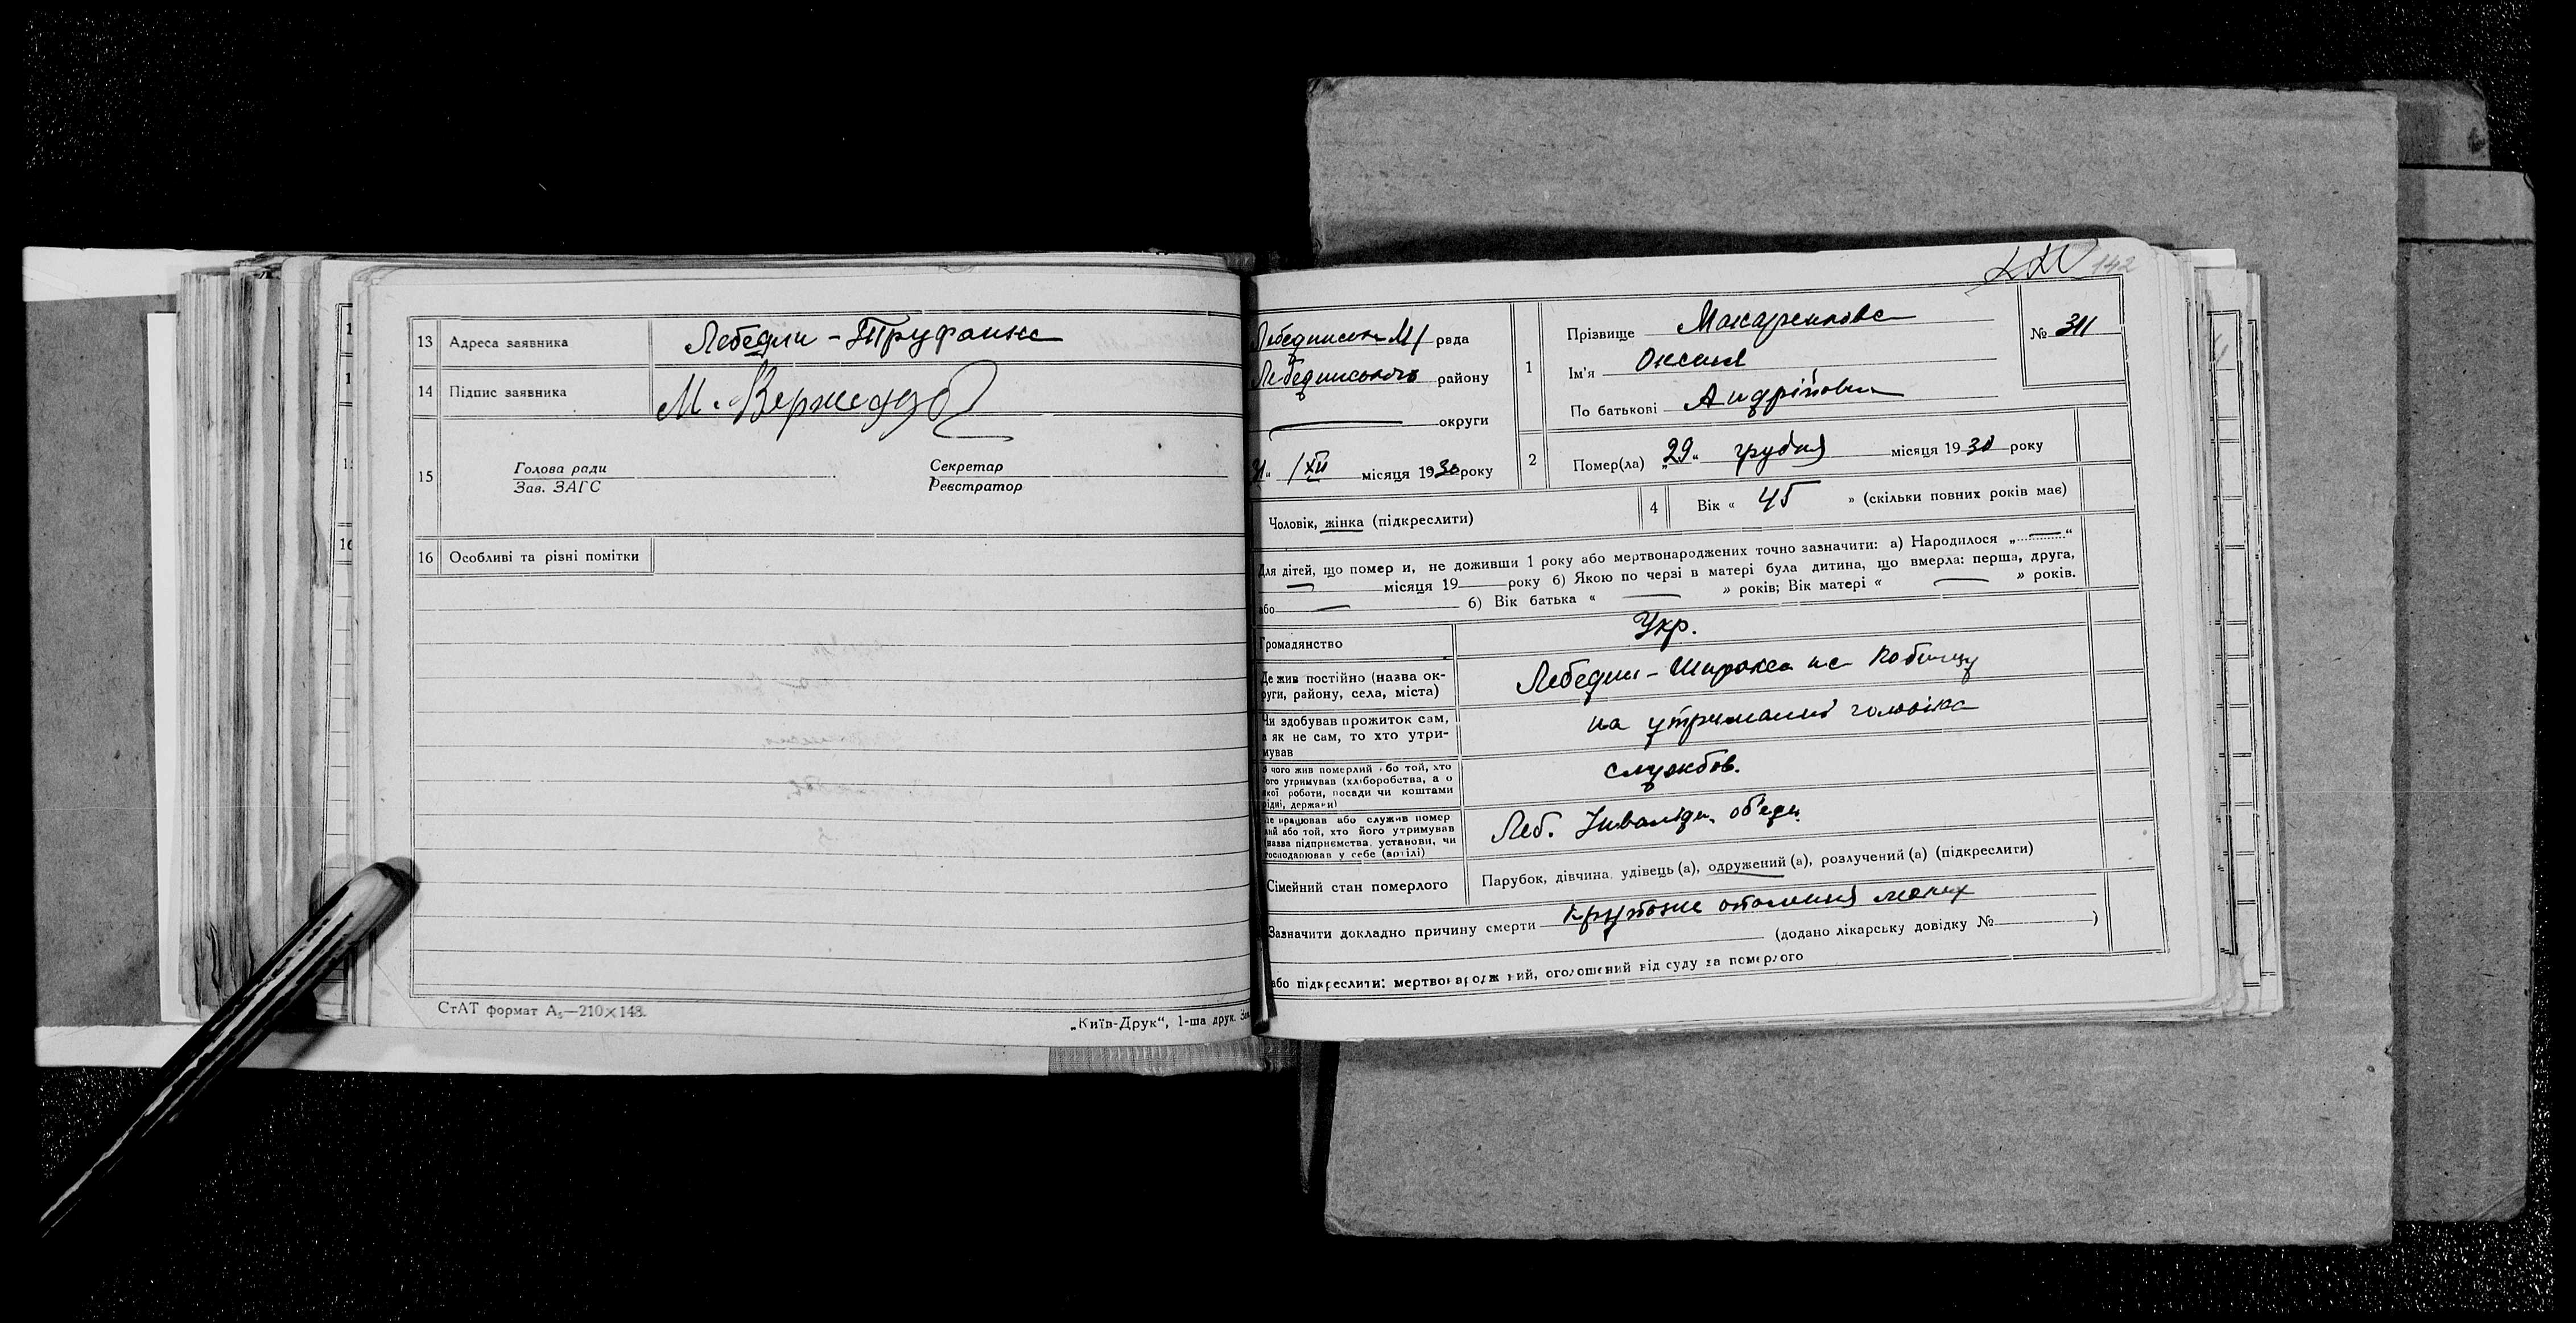 13 Адреса заявника Лебедин - Труфанівка
14 Підпис заявника
15 Голова ради
Зав. ЗАГС
Секретар
Реєстратор
16 Особливі та різні помітки
СтАТ формат А₅—210×148.
„Київ-Друк“, 1-ша друк.
142
рада
Лебединського району
округи
31“ /XII місяця 1930 року
1 Прізвище Макаренкова
Ім'я Оксана
По батькові Андріївна
№ 311
2 Помер(ла) „29“ грудня місяця 1930 року
Чоловік, жінка (підкреслити)
4 Вік « 45 » (скільки повних років має)
Для дітей, що померли, не доживши 1 року або мертвонароджених точно зазначити: а) Народилося „ — “
— місяця 19 — року б) Якою по черзі в матері була дитина, що вмерла: перша, друга,
або — б) Вік батька « — » років; Вік матері « — » років.
Громадянство Укр.
Де жив постійно (назва ок-
руги, району, села, міста) Лебедин - Широка на
Чи здобував прожиток сам,
а як не сам, то хто утри-
мував на утриманні чоловіка
З чого жив померлий або той, хто
його утримував (хліборобства, а о
якої роботи, посади чи коштами
рідні, держави) службов.
Де працював або служив помер
лий або той, хто його утримував
(назва підприємства, установи, чи
господарював у себе (артілі) Леб. Інвалідн. об'єдн.
Сімейний стан померлого Парубок, дівчина, удівець (а), одружений (а), розлучений (а) (підкреслити)
Зазначити докладно причину смерти легких
(додано лікарську довідку № )
або підкреслити: мертвонароджений, оголошений від суду за померлого